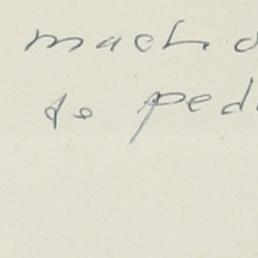 macho
de ped